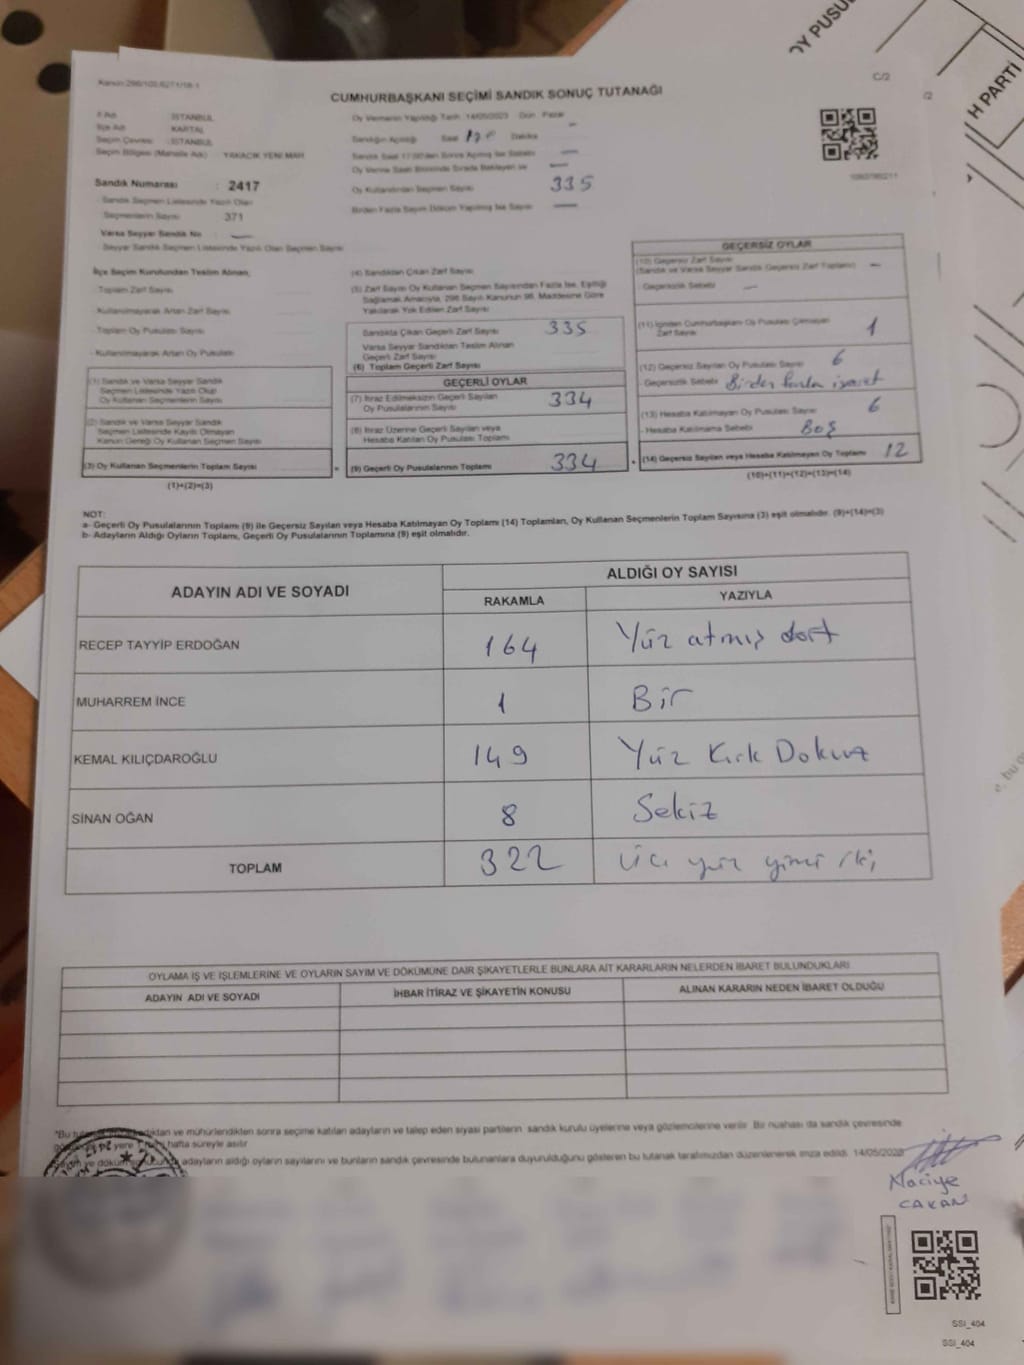 OY PUSU
H PARTİ
C/2
/2
CUMHURBAŞKANI SEÇİMİ SANDIK SONUÇ TUTANAĞI
İl Adı : İSTANBUL
İlçe Adı : KARTAL
Seçim Çevresi : İSTANBUL
Seçim Bölgesi (Mahalle Adı) : YAKACIK YENİ MAH.
Sandık Numarası : 2417
Sandık Seçmen Listesinde Yazılı Olan
Seçmenlerin Sayısı 371
Varsa Seyyar Sandık No —
Seyyar Sandık Seçmen Listesinde Yazılı Olan Seçmen Sayısı
Oy Vermenin Yapıldığı Tarih 14/05/2023 Gün Pazar
Sandığın Açıldığı Saat Dakika
Oy Kullandırılan Seçmen Sayısı 335
Birden Fazla Sayım Döküm Yapılmış İse Sayısı —
İlçe Seçim Kurulundan Teslim Alınan;
- Toplam Zarf Sayısı
- Kullanılmayarak Artan Zarf Sayısı
- Toplam Oy Pusulası Sayısı
- Kullanılmayarak Artan Oy Pusulası
(1) Sandık ve Varsa Seyyar Sandık
Seçmen Listesinde Yazılı Olup
Oy Kullanan Seçmenlerin Sayısı
(2) Sandık ve Varsa Seyyar Sandık
Seçmen Listesinde Kayıtlı Olmayan
Kanun Gereği Oy Kullanan Seçmen Sayısı
(3) Oy Kullanan Seçmenlerin Toplam Sayısı
(1)+(2)=(3)
(4) Sandıktan Çıkan Zarf Sayısı
(5) Zarf Sayısı Oy Kullanan Seçmen Sayısından Fazla İse, Eşitliği
Sağlamak Amacıyla, 298 Sayılı Kanunun 98. Maddesine Göre
Yakılarak Yok Edilen Zarf Sayısı
Sandıkta Çıkan Geçerli Zarf Sayısı 335
Varsa Seyyar Sandıktan Teslim Alınan
Geçerli Zarf Sayısı
(6) Toplam Geçerli Zarf Sayısı
GEÇERLİ OYLAR
(7) İtiraz Edilmeksizin Geçerli Sayılan
Oy Pusulalarının Sayısı 334
(8) İtiraz Üzerine Geçerli Sayılan veya
Hesaba Katılan Oy Pusulası Toplamı
= (9) Geçerli Oy Pusulalarının Toplamı 334
GEÇERSİZ OYLAR
(10) Geçersiz Zarf Sayısı
(Sandık ve Varsa Seyyar Sandık Geçersiz Zarf Toplamı) —
Geçersizlik Sebebi —
(11) İçinden Cumhurbaşkanı Oy Pusulası Çıkmayan
Zarf Sayısı 1
(12) Geçersiz Sayılan Oy Pusulası Sayısı 6
Geçersizlik Sebebi Birden fazla işaret
(13) Hesaba Katılmayan Oy Pusulası Sayısı 6
- Hesaba Katılmama Sebebi Boş
+ (14) Geçersiz Sayılan veya Hesaba Katılmayan Oy Toplamı 12
(10)+(11)+(12)+(13)=(14)
NOT:
a- Geçerli Oy Pusulalarının Toplamı (9) ile Geçersiz Sayılan veya Hesaba Katılmayan Oy Toplamı (14) Toplamları, Oy Kullanan Seçmenlerin Toplam Sayısına (3) eşit olmalıdır. (9)+(14)=(3)
b- Adayların Aldığı Oyların Toplamı, Geçerli Oy Pusulalarının Toplamına (9) eşit olmalıdır.
ADAYIN ADI VE SOYADI
ALDIĞI OY SAYISI
RAKAMLA YAZIYLA
RECEP TAYYİP ERDOĞAN 164 Yüz atmış dört
MUHARREM İNCE 1 Bir
KEMAL KILIÇDAROĞLU 149 Yüz Kırk Dokuz
SİNAN OĞAN 8 Sekiz
TOPLAM 322 yüz yirmi iki
OYLAMA İŞ VE İŞLEMLERİNE VE OYLARIN SAYIM VE DÖKÜMÜNE DAİR ŞİKAYETLERLE BUNLARA AİT KARARLARIN NELERDEN İBARET BULUNDUKLARI
ADAYIN ADI VE SOYADI İHBAR İTİRAZ VE ŞİKAYETİN KONUSU ALINAN KARARIN NEDEN İBARET OLDUĞU
ve mühürlendikten sonra seçime katılan adayların ve talep eden siyasi partilerin sandık kurulu üyelerine veya gözlemcilerine verilir. Bir nüshası da sandık çevresinde
hafta süreyle asılır.
adayların aldığı oyların sayılarını ve bunların sandık çevresinde bulunanlara duyurulduğunu gösteren bu tutanak tarafımızdan düzenlenerek imza edildi. 14/05/2023
Naciye
CAKAN
SSI_404
SSI_404